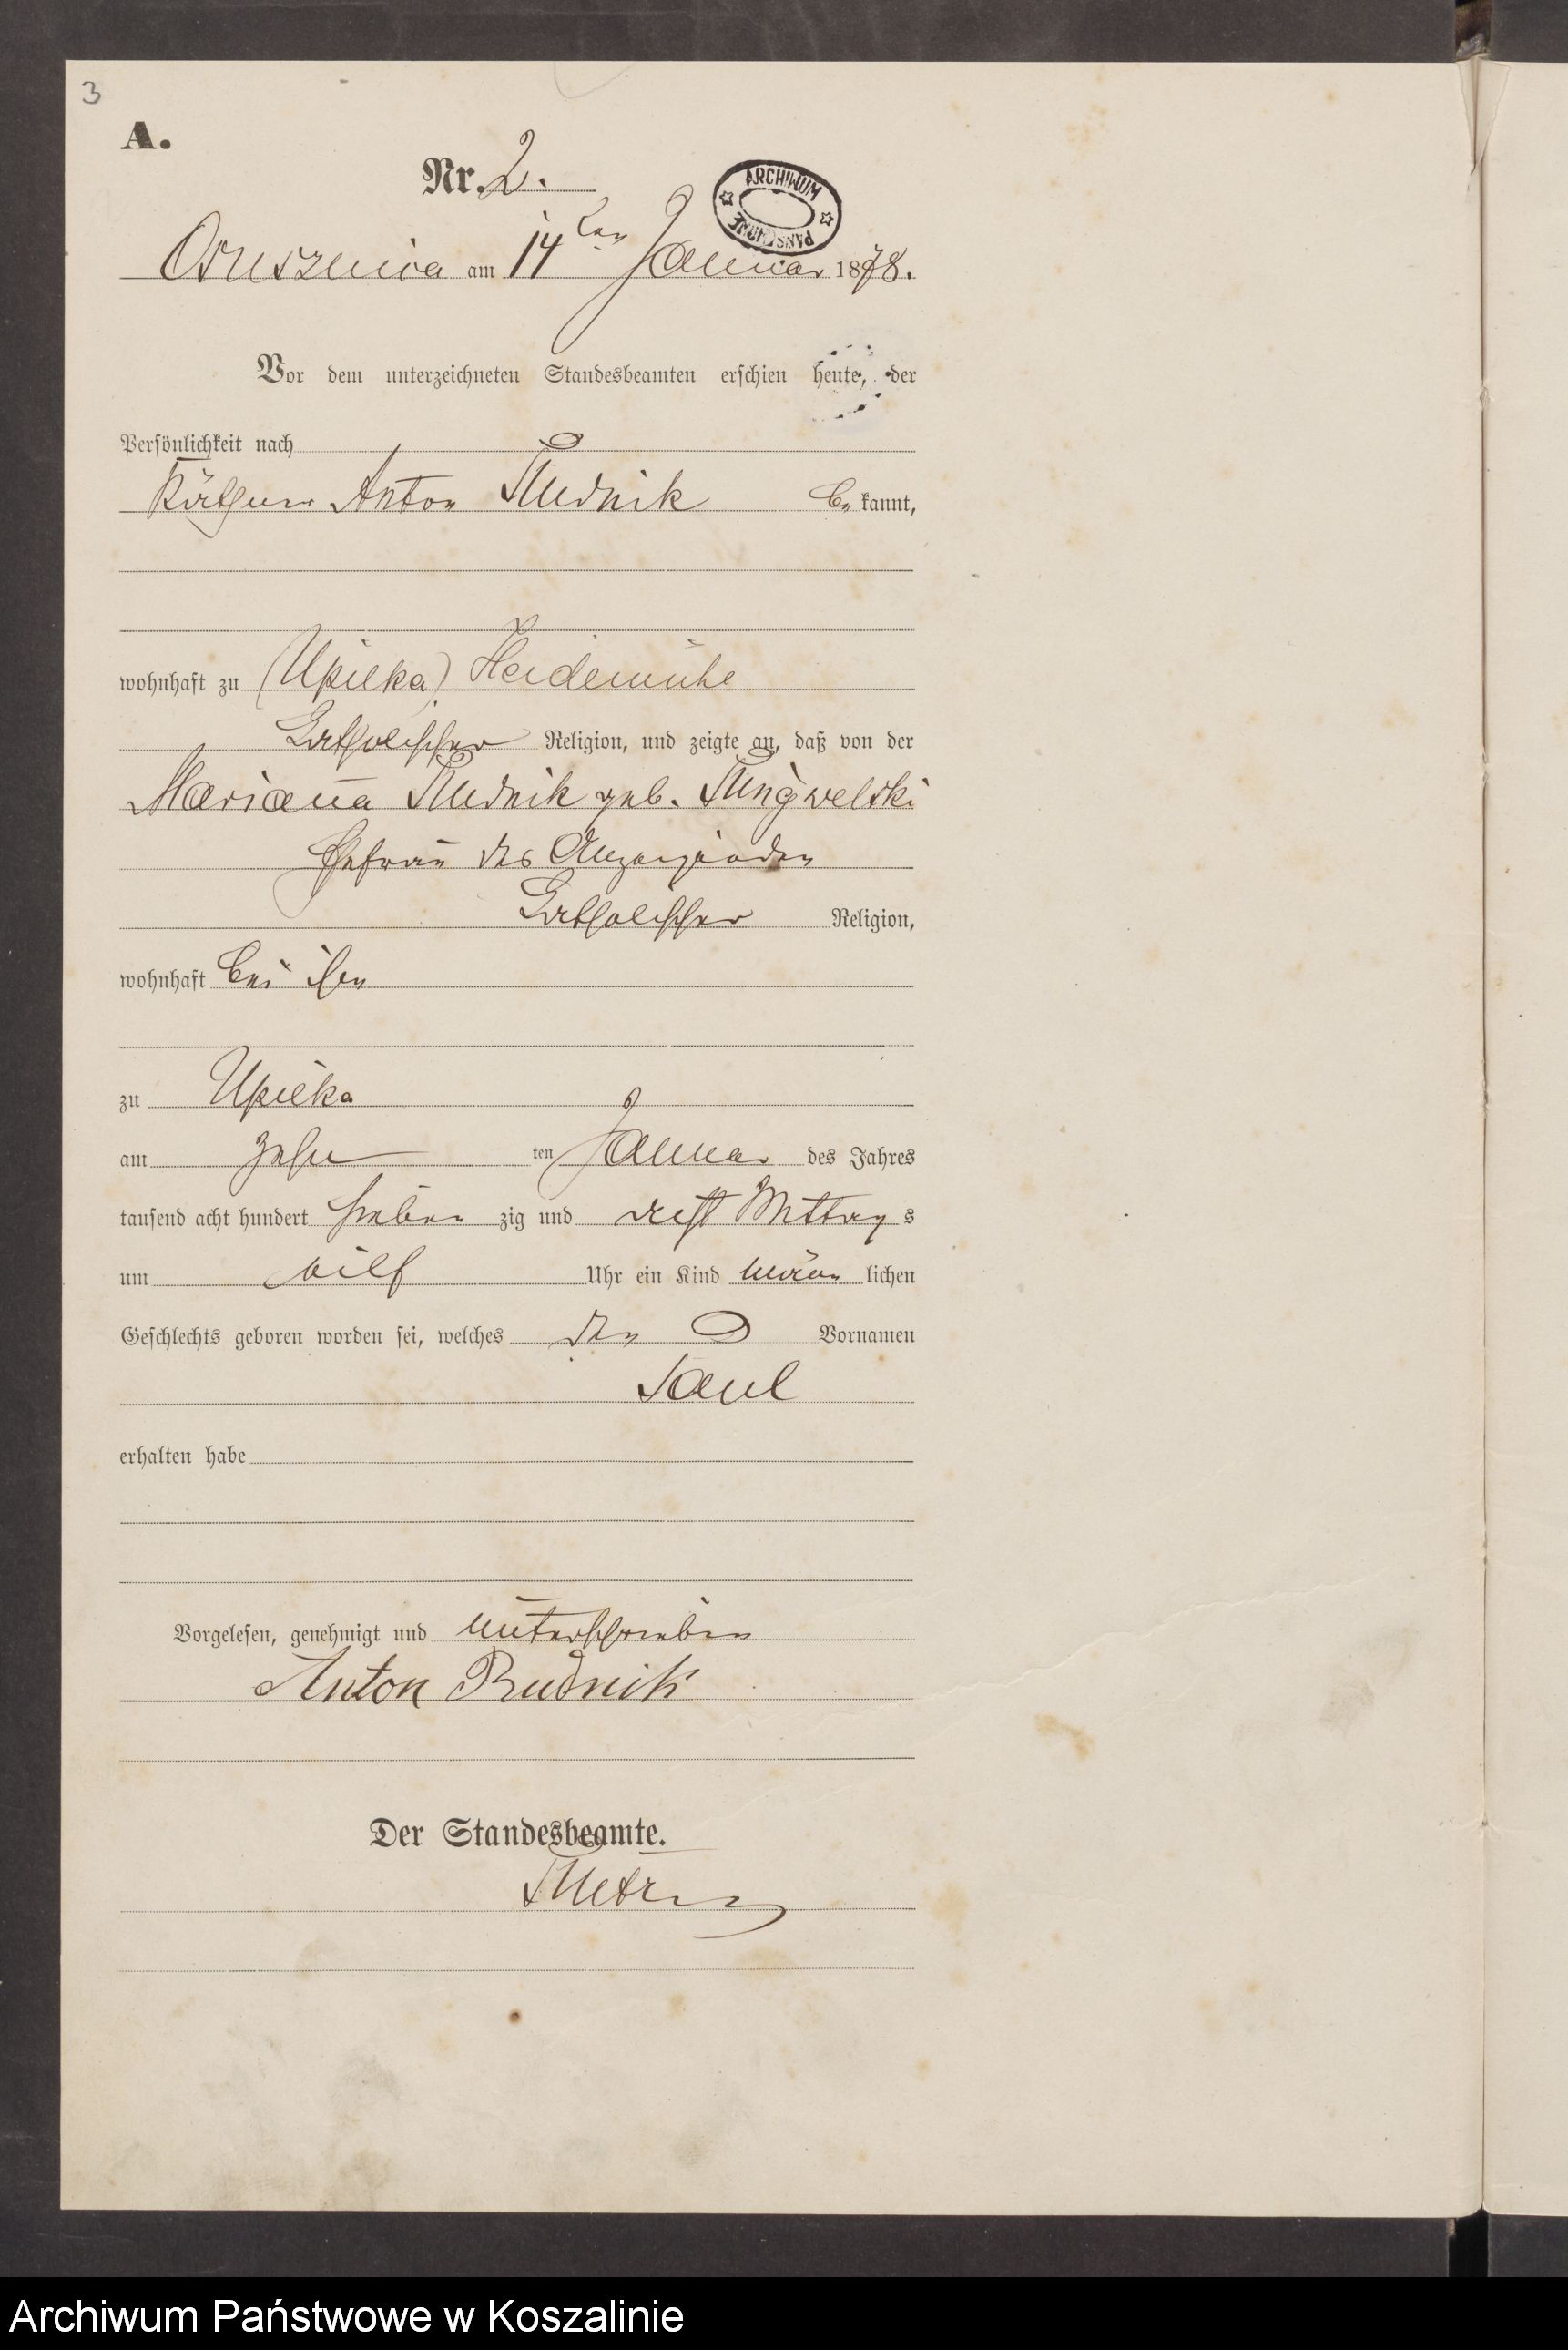 3
A.
Nr. 2.
ARCHIWUM PAŃSTWOWE
Osusznica am 14ten Januar 1878.
Vor dem unterzeichneten Standesbeamten erschien heute, der
Persönlichkeit nach
Käthner Anton Rudnik bekannt,
wohnhaft zu (Upilka) Heidemühe
katholischer Religion, und zeigte an, daß von der
Marianna Rudnik geb.
Ehefrau des Anzeigenden
katholischer Religion,
wohnhaft bei ihm
zu Upilka
am zehn ten Januar des Jahres
tausend acht hundert sieben zig und acht Mittags
um Uhr ein Kind männ lichen
Geschlechts geboren worden sei, welches den Vornamen
Paul
erhalten habe
Vorgelesen, genehmigt und unterschrieben
Anton Rudnik
Der Standesbeamte.
Archiwum Państwowe w Koszalinie